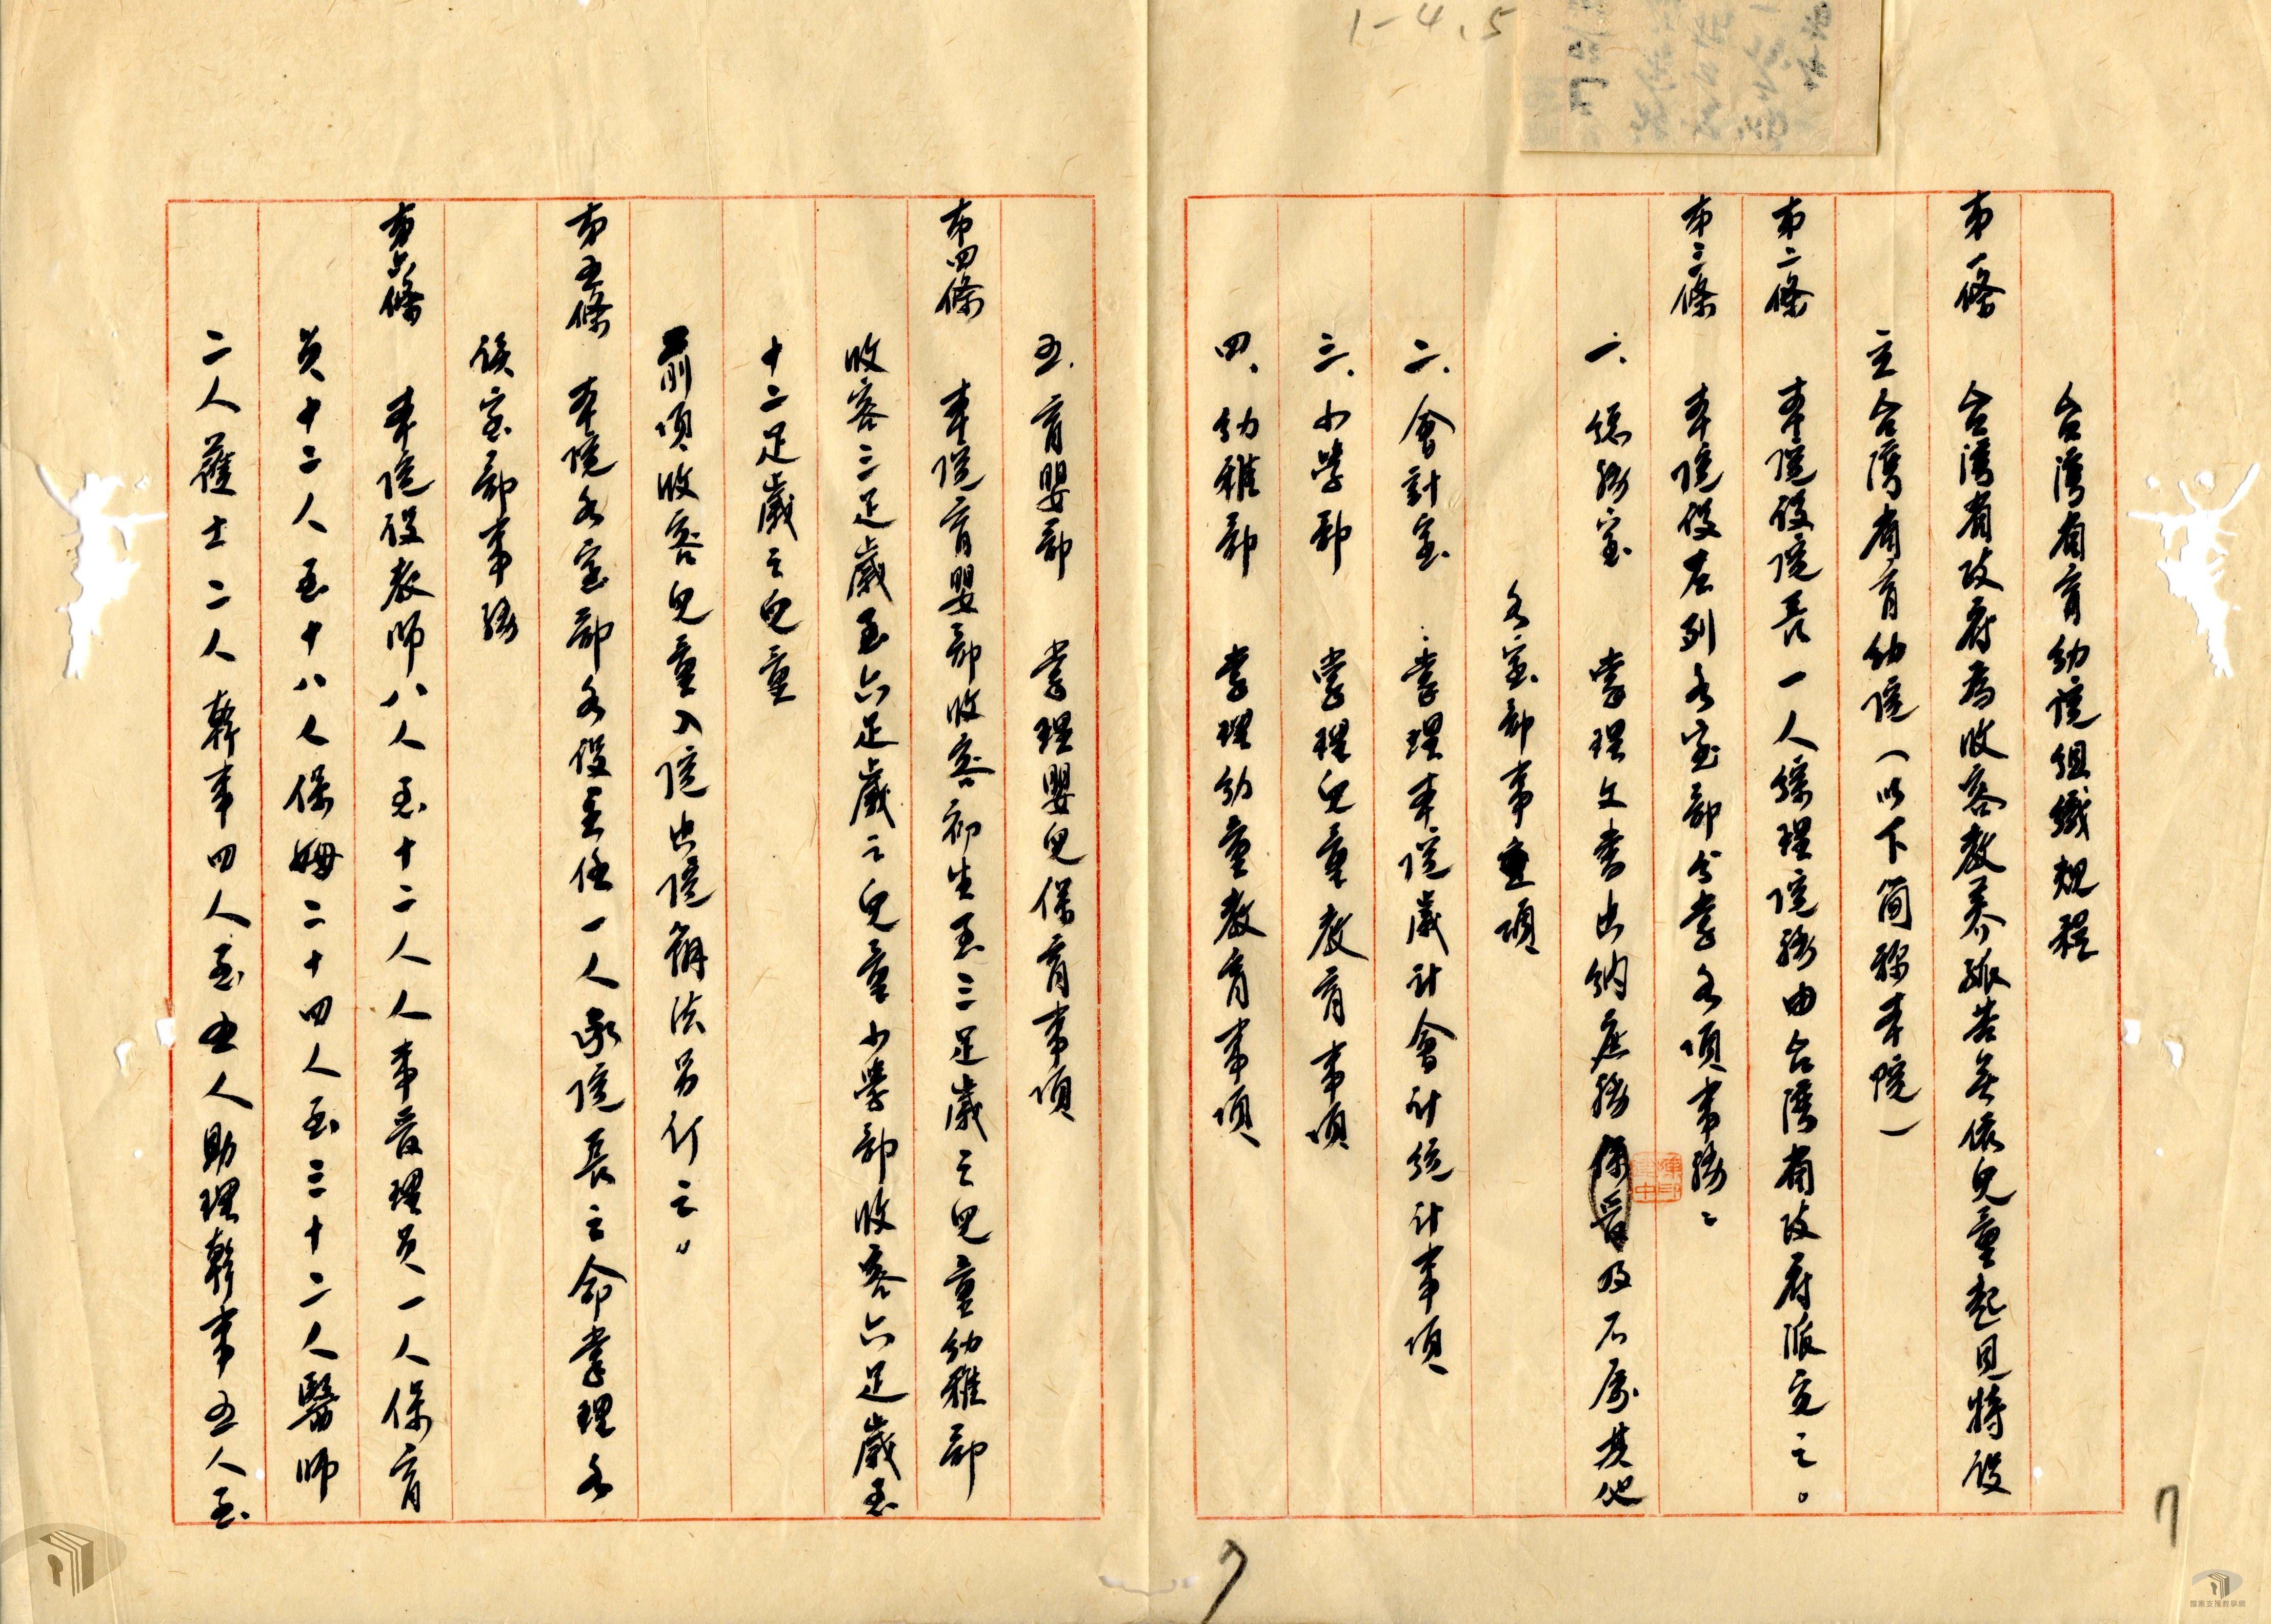 1-4.5
台灣省育幼院組織規程
第一條 台灣省政府為收容教養孤苦無依兒童起見特設
立台灣省育幼院(以下简称本院)
第二條 本院設院長一人綜理院務由台灣省政府派充之。
第三條 本院設左列各室部分掌各項事務:
一、總務室 掌理文書出納庶務保管及不屬其他
各室部事項
二、會計室 掌理本院歲計會計統計事項
三、小學部 掌理兒童教育事項
四、幼稚部 掌理幼童教育事項
五、育嬰部 掌理嬰兒保育事項
第四條 本院育嬰部收容初生至三足歲之兒童幼稚部
收容三足歲至六足歲之兒童小學部收容六足歲至
十二足歲之兒童
前項收容兒童入院出院辦法另訂之。
第五條 本院各室部各設主任一人承院長之命掌理各
該室部事務
第六條 本院設教師八人至十二人人事管理員一人保育
員十二人至十八人保姆二十四人至三十二人醫師
二人護士二人幹事四人至五人助理幹事五人至
7
7
檔案支援教學網